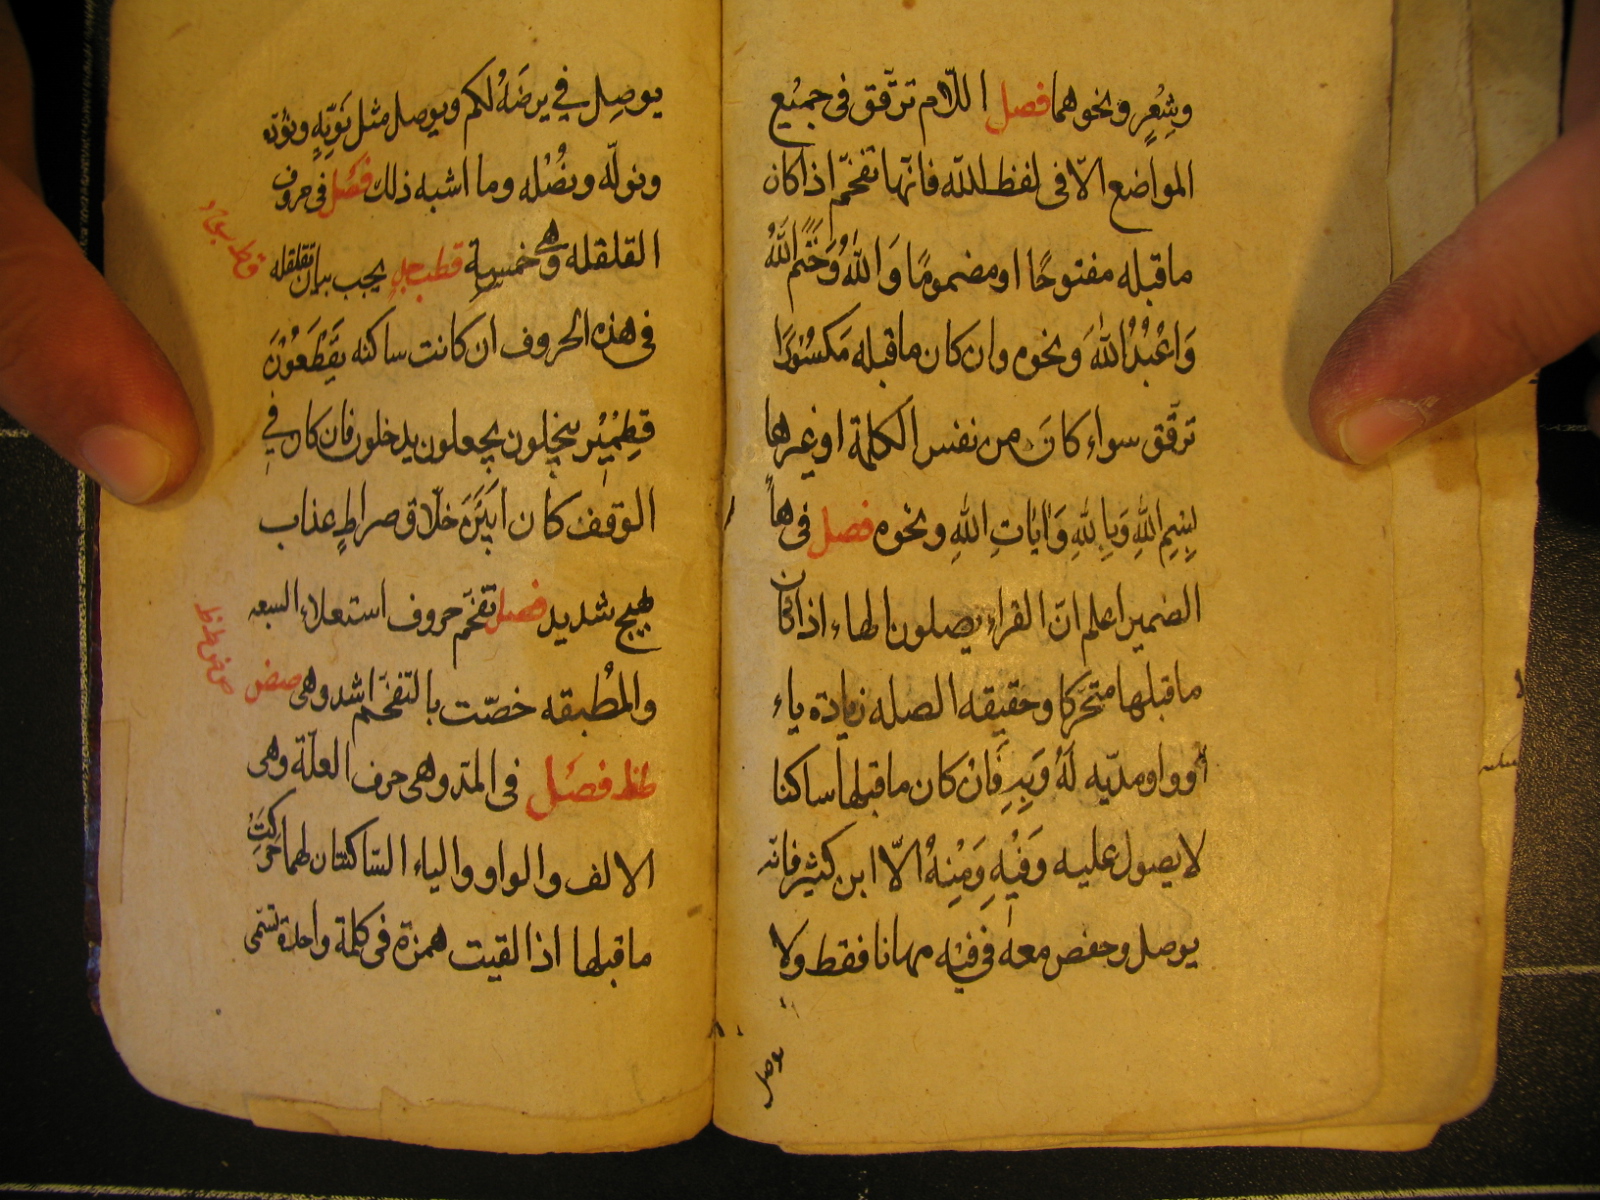 وشِعْرٍ ونحوهما فصل اللّام ترقّق فى جميع
المواضع الّا فى لفظ اللّه فانّها تفخّم اذا كان
ما قبله مفتوحًا او مضمومًا وَاللّٰهُ وَخَتَمَ اللّٰهُ
وَاعْبُدُ اللّٰهَ ونحوه وان كان ما قبله مَكسُورًا
ترقّق سواء كانَ من نفس الكلمة او غيرها
بِسْمِ اللّٰهِ وَبِاللّٰهِ وَاٰيَاتِ اللّٰهِ ونحوه فصل فى هاء
الضمير اعلم انّ القراء يصلون الهاء اذا كان
ما قبلها متحرّكا وحقيقه الصله زيادة ياء
أو واو مديّه لَهُ وَبِهِ فَانْ كان ما قبلها ساكنا
لا يصول عليه وَفيْهِ وَمِنْهُ الّا ابن كثير فانّه
يوصل وحفص معه فى فيه مهانا فقط ولا
يوصل
يوصِل فِي يرضَهُ لكم ويوصل مثل نَوَيّهٖ ونؤته
ونولّه ونصْله وما اشبه ذلك فصل فى حروف
القلقله وهى خمسة قطب جد يجب بيان تقلقله
فى هذه الحروف ان كانت ساكنه يَقْطَعُوْنَ
قِطْمِيْرٍ يبخلون يجعلون يدخلون فان كان فِي
الوقف كان ابيَنَ خلّاق صراطٍ عذاب
بهيج شديد فصل تفخّم حروف استعلاء السبعه
والمُطبقه خصّت بالتفخّم اشد وهى صض
طظ فصل فى المدّ وهى حرف العلّة وهى
الالف والواو والياء السّاكنتان لهما حركت
ما قبلها اذا لقيت همزة فى كلمة واحدة تسمّى
ص ض ط ظ